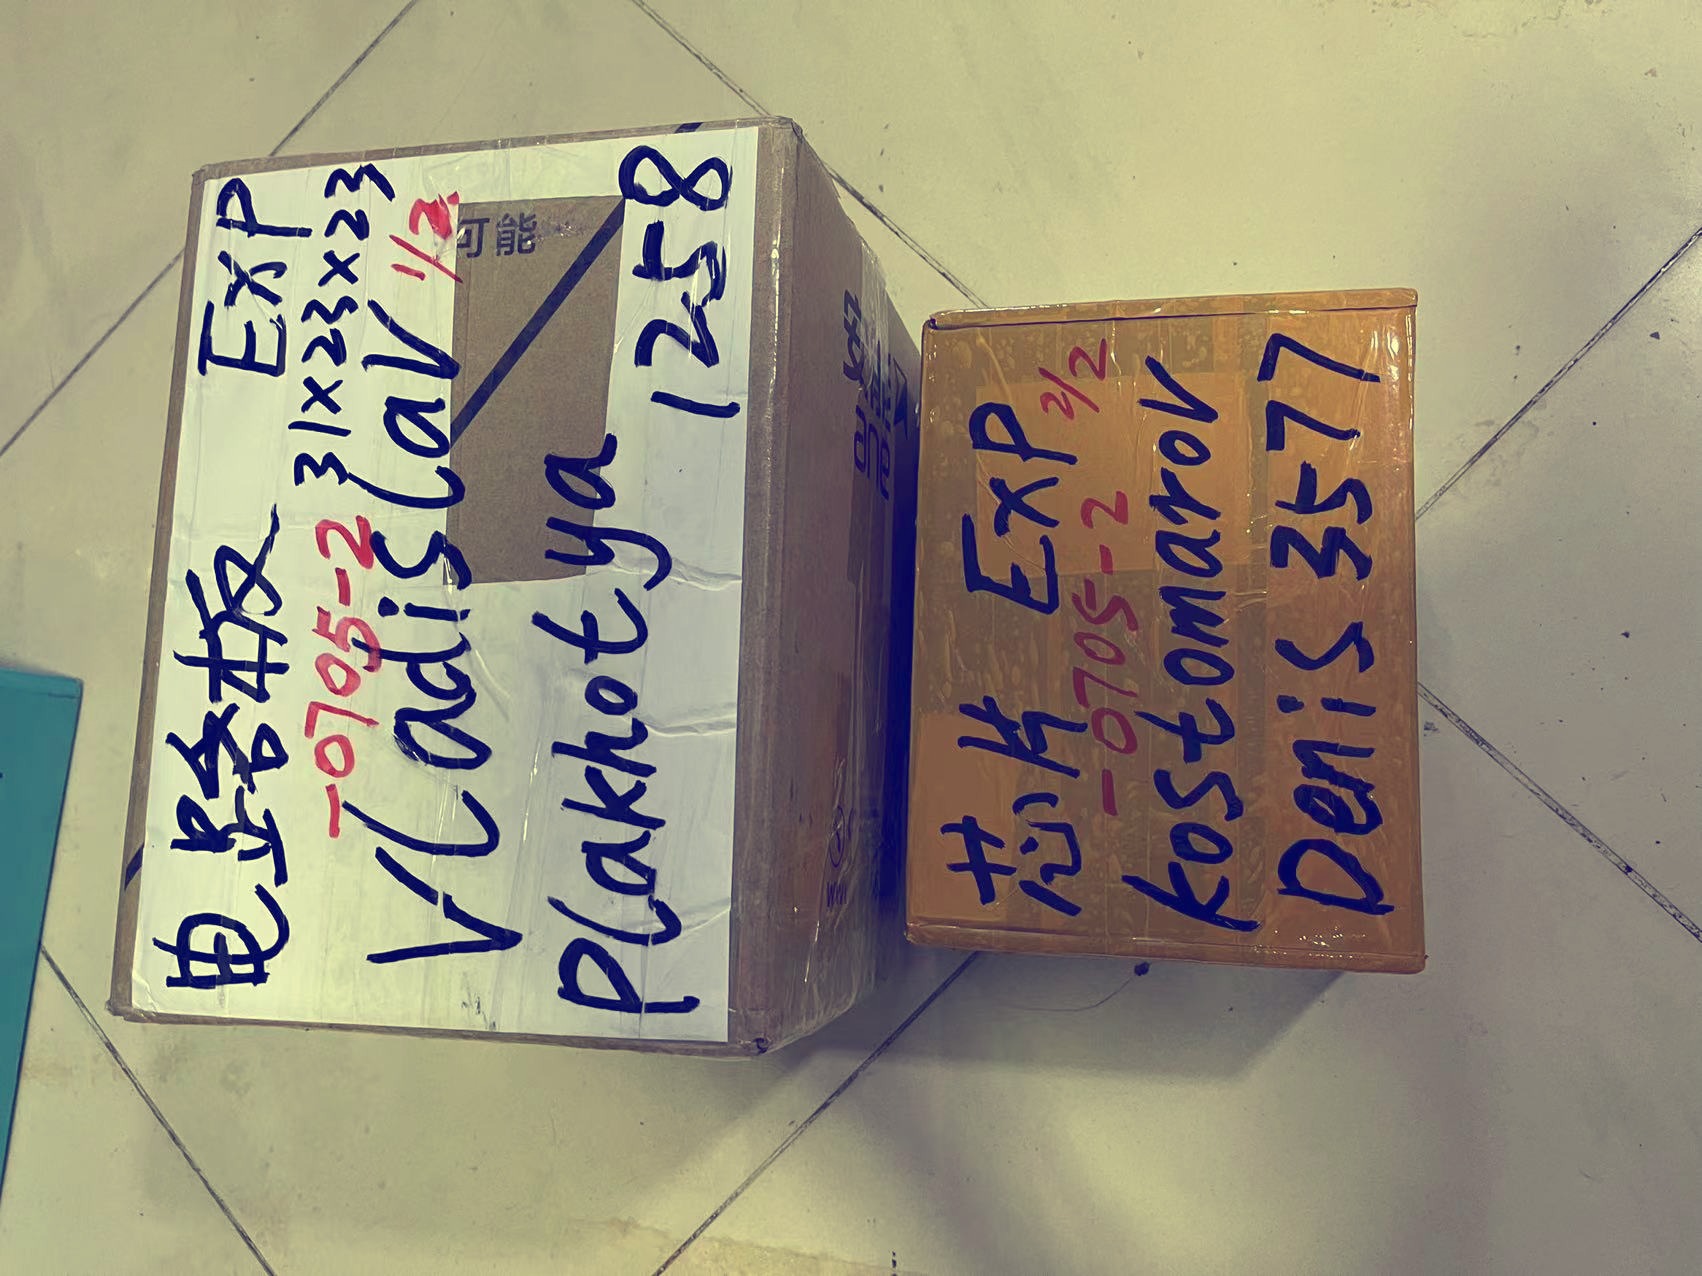 电路板 EXP
-0705-2 31x23x23
Vladislav 1/2
Plakhotya 1258
可能
芯片 EXP 2/2
-0705-2
Kostomarov
Denis 3577